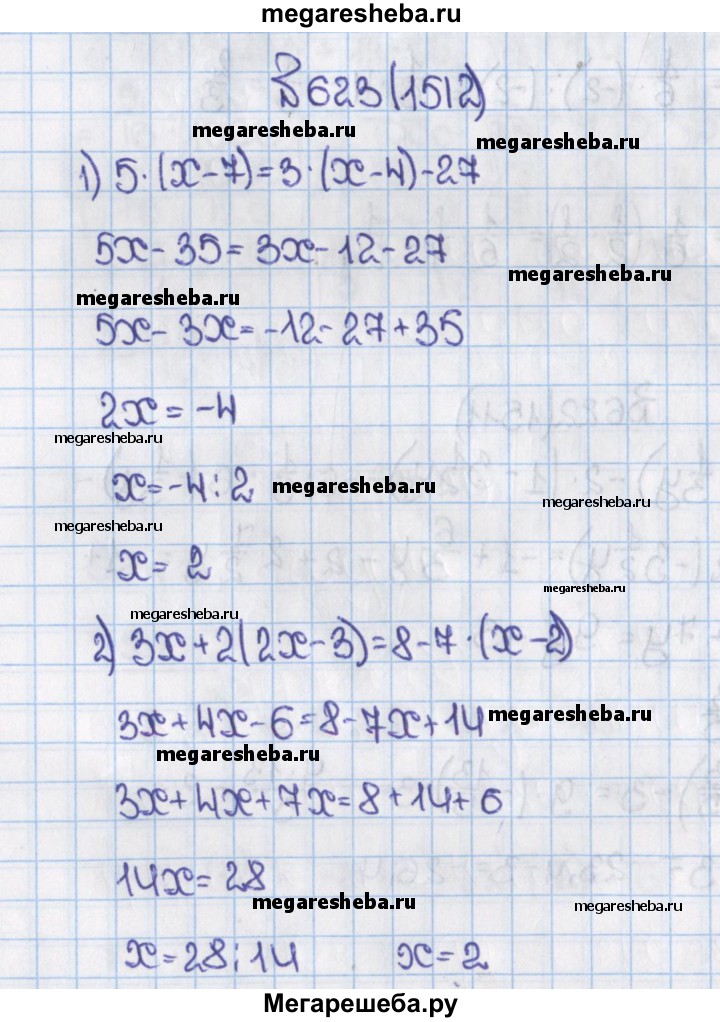 megaresheba.ru
№623(1512)
megaresheba.ru
megaresheba.ru
1) 5·(x-7)=3·(x-4)-27
5x-35=3x-12-27
megaresheba.ru
megaresheba.ru
5x-3x=-12-27+35
2x=-4
megaresheba.ru
x=-4:2
megaresheba.ru
megaresheba.ru
megaresheba.ru
x= 2
megaresheba.ru
megaresheba.ru
2) 3x+2(2x-3)=8-7·(x-2)
3x+4x-6=8-7x+14
megaresheba.ru
megaresheba.ru
3x+4x+7x=8+14+6
14x=28
megaresheba.ru
megaresheba.ru
x=28:14 x=2
Мегарешеба.ру